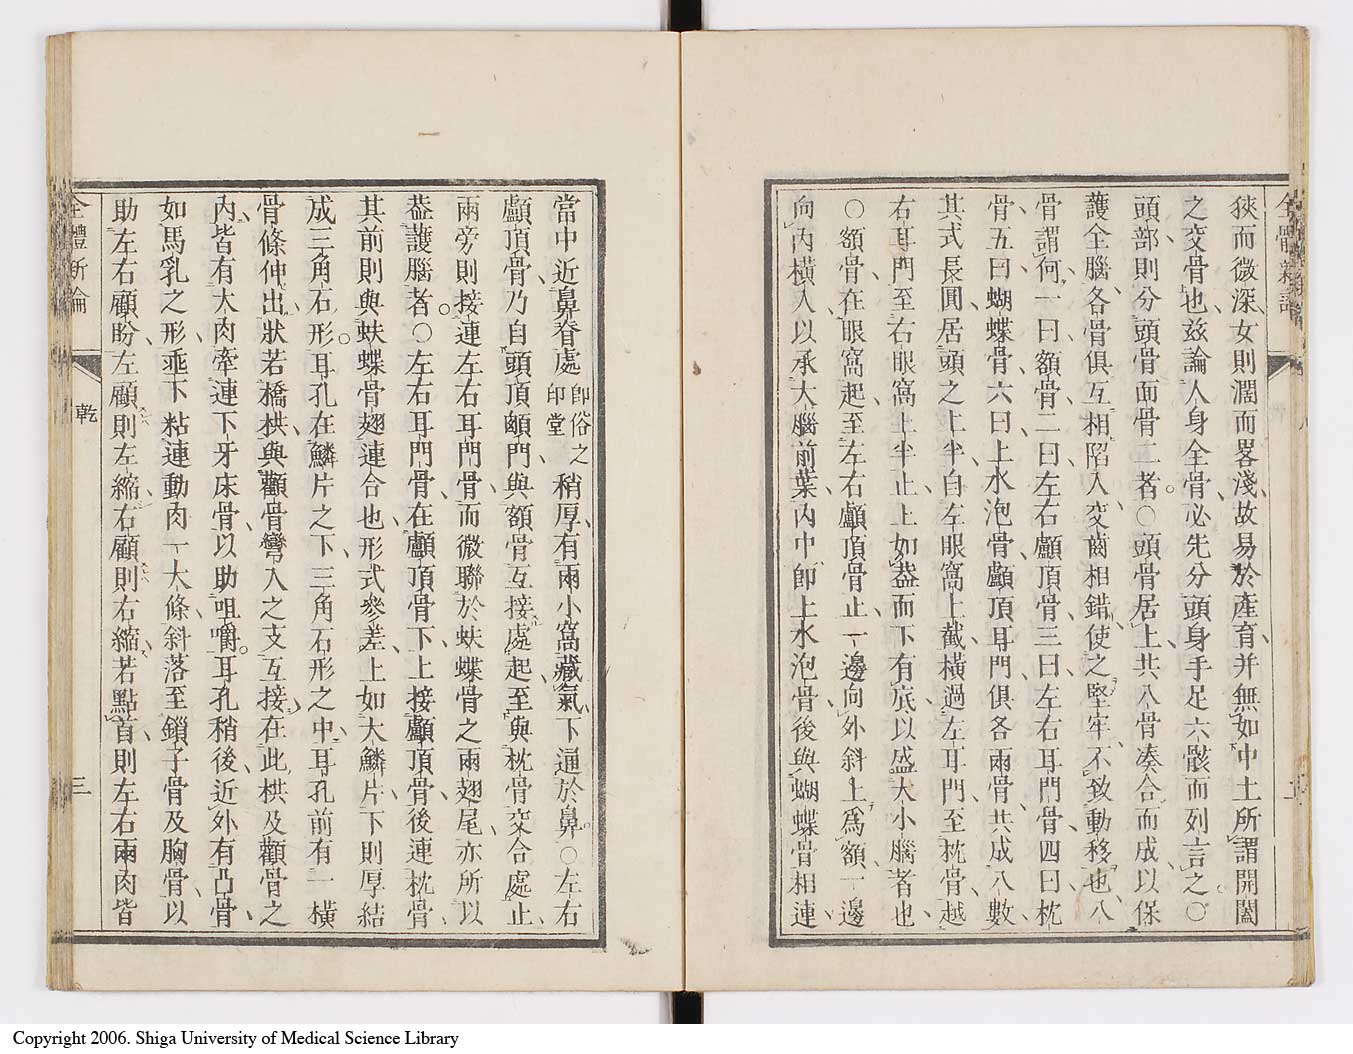 狹而微深女則濶而畧淺故易於產育并無如中土所謂開闔
之交骨也茲論人身全骨必先分頭身手足六骸而列言之○
頭部則分頭骨面骨二者○頭骨居上共八骨凑合而成以保
護全腦各骨俱互相陷入交齒相錯使之堅牢不致動移也八
骨謂何一曰額骨二曰左右顱頂骨三曰左右耳門骨四曰枕
骨五曰蝴蝶骨六曰上水泡骨顱頂耳門俱各兩骨共成八數
其式長圓居頭之上半自左眼窩上截橫過左耳門至枕骨越
右耳門至右眼窩上半止上如葢而下有底以盛大小腦者也
○額骨在眼窩起至左右顱頂骨止一邊向外斜上爲額一邊
向內橫入以承大腦前葉內中即上水泡骨後與蝴蝶骨相連
當中近鼻脊處即俗之印堂稍厚有兩小窩藏氣下通於鼻○左右
顱頂骨乃自頭頂顖門與額骨互接處起至與枕骨交合處止
兩旁則接連左右耳門骨而微聯於蚨蝶骨之兩翅尾亦所以
葢護腦者○左右耳門骨在顱頂骨下上接顱頂骨後連枕骨
其前則與蚨蝶骨翅連合也形式參差上如大鱗片下則厚結
成三角石形耳孔在鱗片之下三角石形之中耳孔前有一橫
骨條伸出狀若橋栱與顴骨彎入之支互接在此栱及顴骨之
內皆有大肉牽連下牙床骨以助咀嚼耳孔稍後近外有凸骨
如馬乳之形垂下粘連動肉一大條斜落至鎖子骨及胸骨以
助左右顧盼左顧則左縮右顧則右縮若點首則左右兩肉皆
全體新論
乾
三
Copyright 2006. Shiga University of Medical Science Library